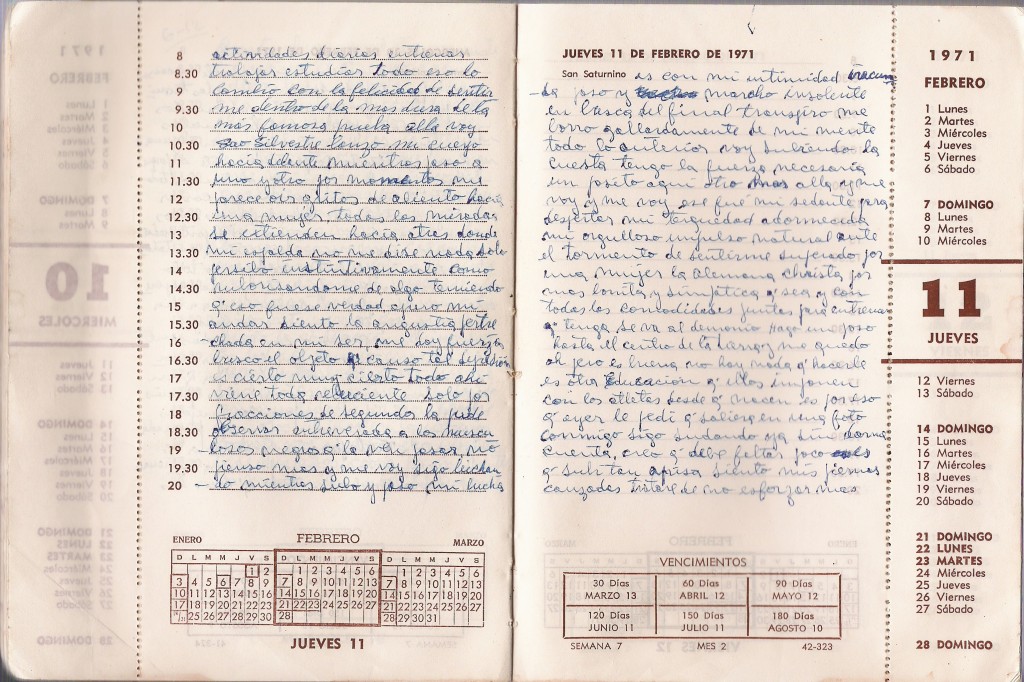 1971
FEBRERO
10
MIERCOLES
8 actividades diarias entrenar
8.30 trabajar estudiar todo eso lo
9 cambio con la felicidad de sentir
9.30 me dentro de la mas dura de la
10 mas famosa prueba alla voy
10.30 Sao Silvestre lanzo mi cuerpo
11 hacia delante mientras paso a
11.30 uno y otro por momentos me
12 parece oir gritos de aliento hacia
12.30 una mujer todas las miradas
13 se extienden hacia atras donde
13.30 mi espalda no me dice nada solo
14 instintivamente como
14.30 ruborisandome de algo temiendo
15 q' eso fuese verdad apuro mi
15.30 andar siento la angustia pertre
16 -chada en mi ser, me doy fuerza,
16.30 busco el objeto q' causo tal
17 es cierto muy cierto todo ahi
17.30 viene toda reluciente solo por
18 fracciones de segundos la pude
18.30 observar a los
19 -losos negros q' la ven pasar, no
19.30 pienso mas y me voy sigo luchan
20 -do mientras subo y paso mi lucha
ENERO FEBRERO MARZO
D L M M J V S D L M M J V S D L M M J V S
1 2 1 2 3 4 5 6 1 2 3 4 5 6
3 4 5 6 7 8 9 7 8 9 10 11 12 13 7 8 9 10 11 12 13
10 11 12 13 14 15 16 14 15 16 17 18 19 20 14 15 16 17 18 19 20
17 18 19 20 21 22 23 21 22 23 24 25 26 27 21 22 23 24 25 26 27
24/31 25 26 27 28 29 30 28 28 29 30 31
JUEVES 11
JUEVES 11 DE FEBRERO DE 1971
San Saturnino es con mi intimidad iracun
-da paso y marcho insolente
en busca del final transpiro me
borro gallardamente de mi mente
todo lo anterior voy subiendo la
cuesta tengo la fuerza necesaria
un pasito aqui otro mas alla y me
voy y me voy ese fue mi sedante para
despertar mi terquedad adormecida
mi orgulloso impulso natural ante
el tormento de sentirme superado por
una mujer la Alemana christa por
mas bonita y simpática q' sea y con
todas las comodidades juntas para entrenar
q' tenga se va al demonio Hago un poso
hasta el centro de la tierra y me quedo
ah pero es buena no hay nada q' hacerle
es otra educacion q' ellos imponen
con los atletas desde q' nacen es por eso
q' ayer le pedi q' saliera en una foto
conmigo sigo sudando ya sin darme
cuenta, creo q' debe faltar poco
q' subitan aprisa siento mis piernas
canzadas trataré de no esforzar mas
VENCIMIENTOS
30 Días 60 Días 90 Días
MARZO 13 ABRIL 12 MAYO 12
120 Días 150 Días 180 Días
JUNIO 11 JULIO 11 AGOSTO 10
SEMANA 7 MES 2 42-323
1971
FEBRERO
1 Lunes
2 Martes
3 Miércoles
4 Jueves
5 Viernes
6 Sábado
7 DOMINGO
8 Lunes
9 Martes
10 Miércoles
11
JUEVES
12 Viernes
13 Sábado
14 DOMINGO
15 Lunes
16 Martes
17 Miércoles
18 Jueves
19 Viernes
20 Sábado
21 DOMINGO
22 LUNES
23 MARTES
24 Miércoles
25 Jueves
26 Viernes
27 Sábado
28 DOMINGO